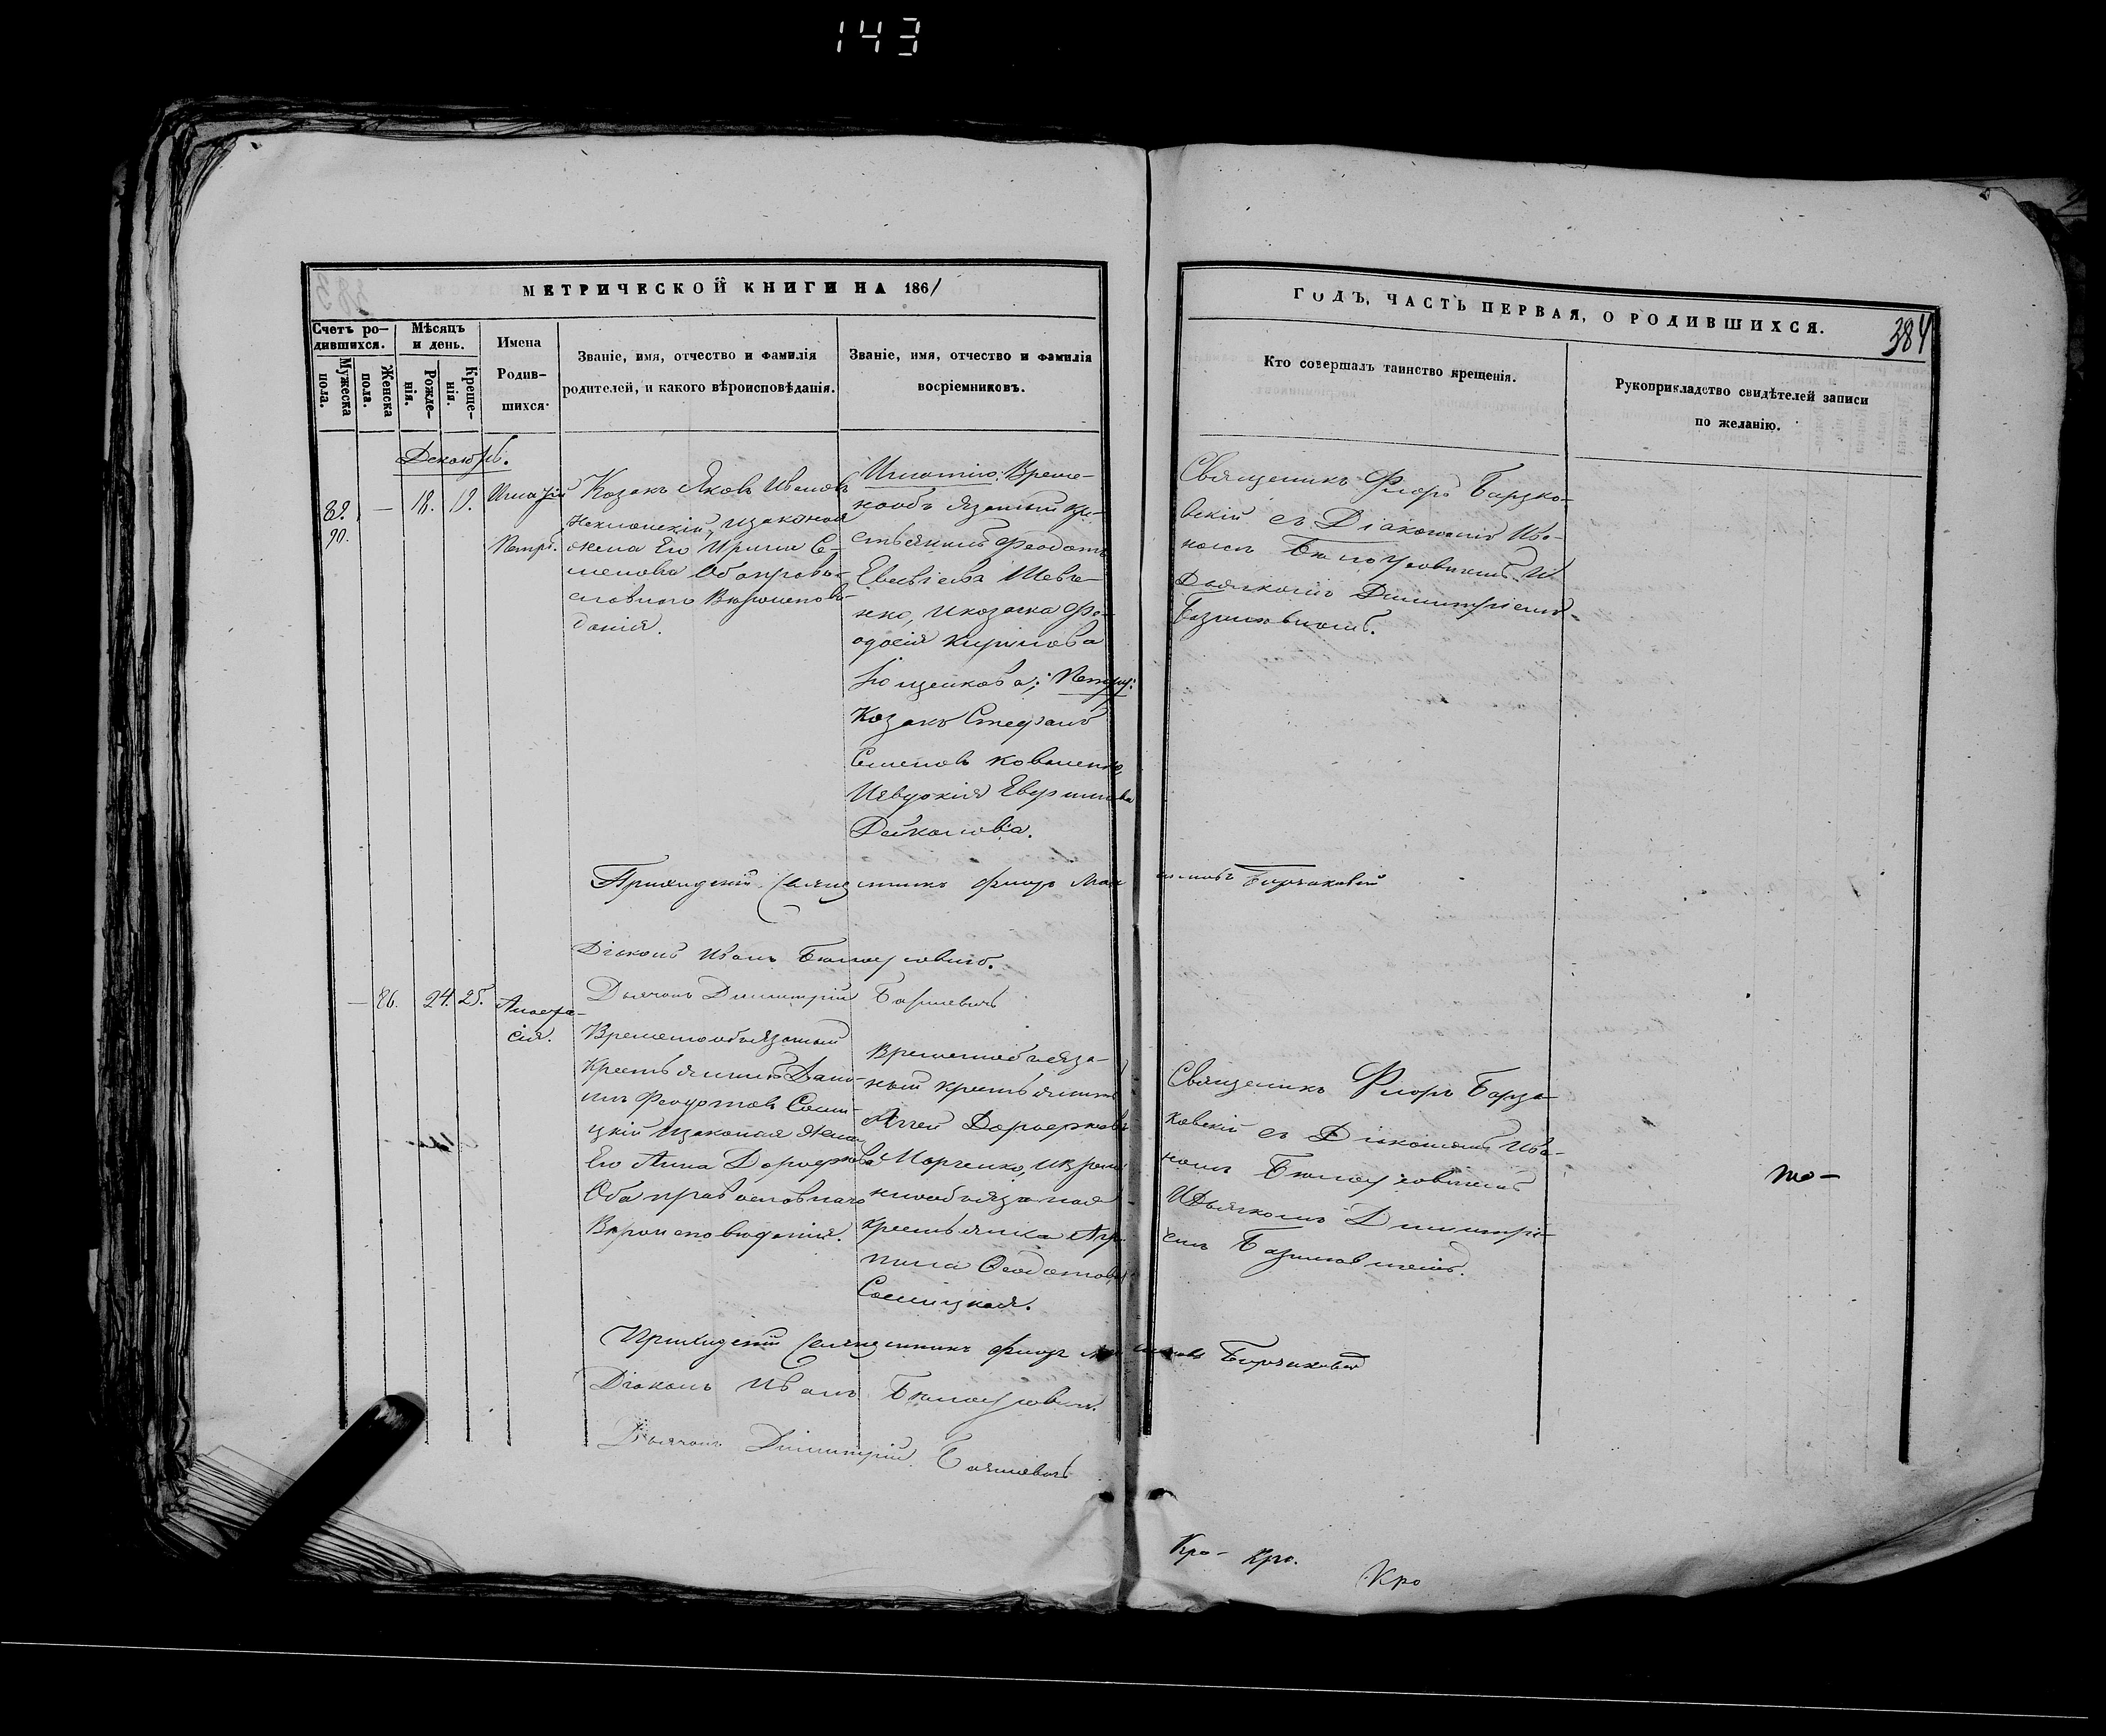 143
МЕТРИЧЕСКОЙ КНИГИ НА 1861
ГОДЪ, ЧАСТЬ ПЕРВАЯ, О РОДИВШИХСЯ.
384
Счетъ ро-
дившихся.
Мужеска
пола.
Женска
пола.
Мѣсяцъ
и день.
Рожде-
нія.
Креще-
нія.
Имена
Родив-
шихся.
Званіе, имя, отчество и фамилія
родителей, и какого вѣроисповѣданія.
Званіе, имя, отчество и фамилія
воспріемниковъ.
Кто совершалъ таинство крещенія.
Рукоприкладство свидѣтелей записи
по желанію.
Декабрь.
89.
90.
—
18.
19.
Игнатій
Петръ.
Козакъ Яковъ Ивановъ
изаконая
жена Его Ирина Се-
менова Оба право-
славнаго Вѣроиспове-
данія.
Игнатію: Време-
нообязанный кре-
стьянинъ Феодотъ
Евсѣіевъ Шевче-
нко, и козачка Фе-
одосія Кирилова
Петру:
Козакъ Стефанъ
Семеновъ Коваленко,
И Евдокія
Священикъ Флоръ Барзко-
вскій съ Діакономъ Ива-
номъ Билоусовичемъ И
Дьячкомъ Димитріемъ
Базилевичемъ.
Приходскій Священникъ Флоръ
Діаконъ Иванъ Билоусовичъ.
Дьячокъ Димитрій Базилевичъ
—
86.
24.
25.
Анаста-
сія.
Временнообязанный
Крестьянинъ Дани-
илъ Феодотовъ Сосни-
цкій изаконая Жена
Его Анна Дорофеева
Оба православнаго
Вѣроисповѣданія.
Временнообяза-
ный крестьянинъ
Аггей Дорофеевъ
Марченко, и Време-
нообязаная
крестьянка Агри-
пина Феодотова
Сосницкая.
Священикъ Флоръ Барза-
ковскій съ Діакономъ Ива-
номъ Билоусовичемъ
И Дьячкомъ Димитрі-
емъ Базилевичемъ.
то-
Приходскій Священникъ Флоръ
Діаконъ Иванъ Билоусовичъ.
Дьячокъ Димитрій Базилевичъ
Кро- Кро.
Кро